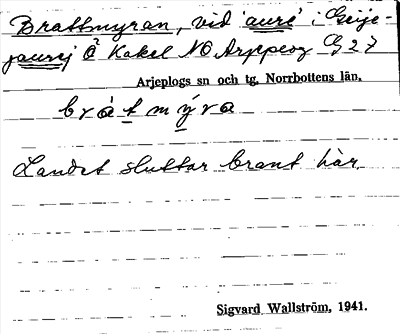 Brattmyran, vid 'aure' i Geije-
jaurej Ö Kakel NO Arjeplog G 27
Arjeplogs sn och tg, Norrbottens län.
bràtmýra
Landet sluttar brant här.
Sigvard Wallström, 1941.